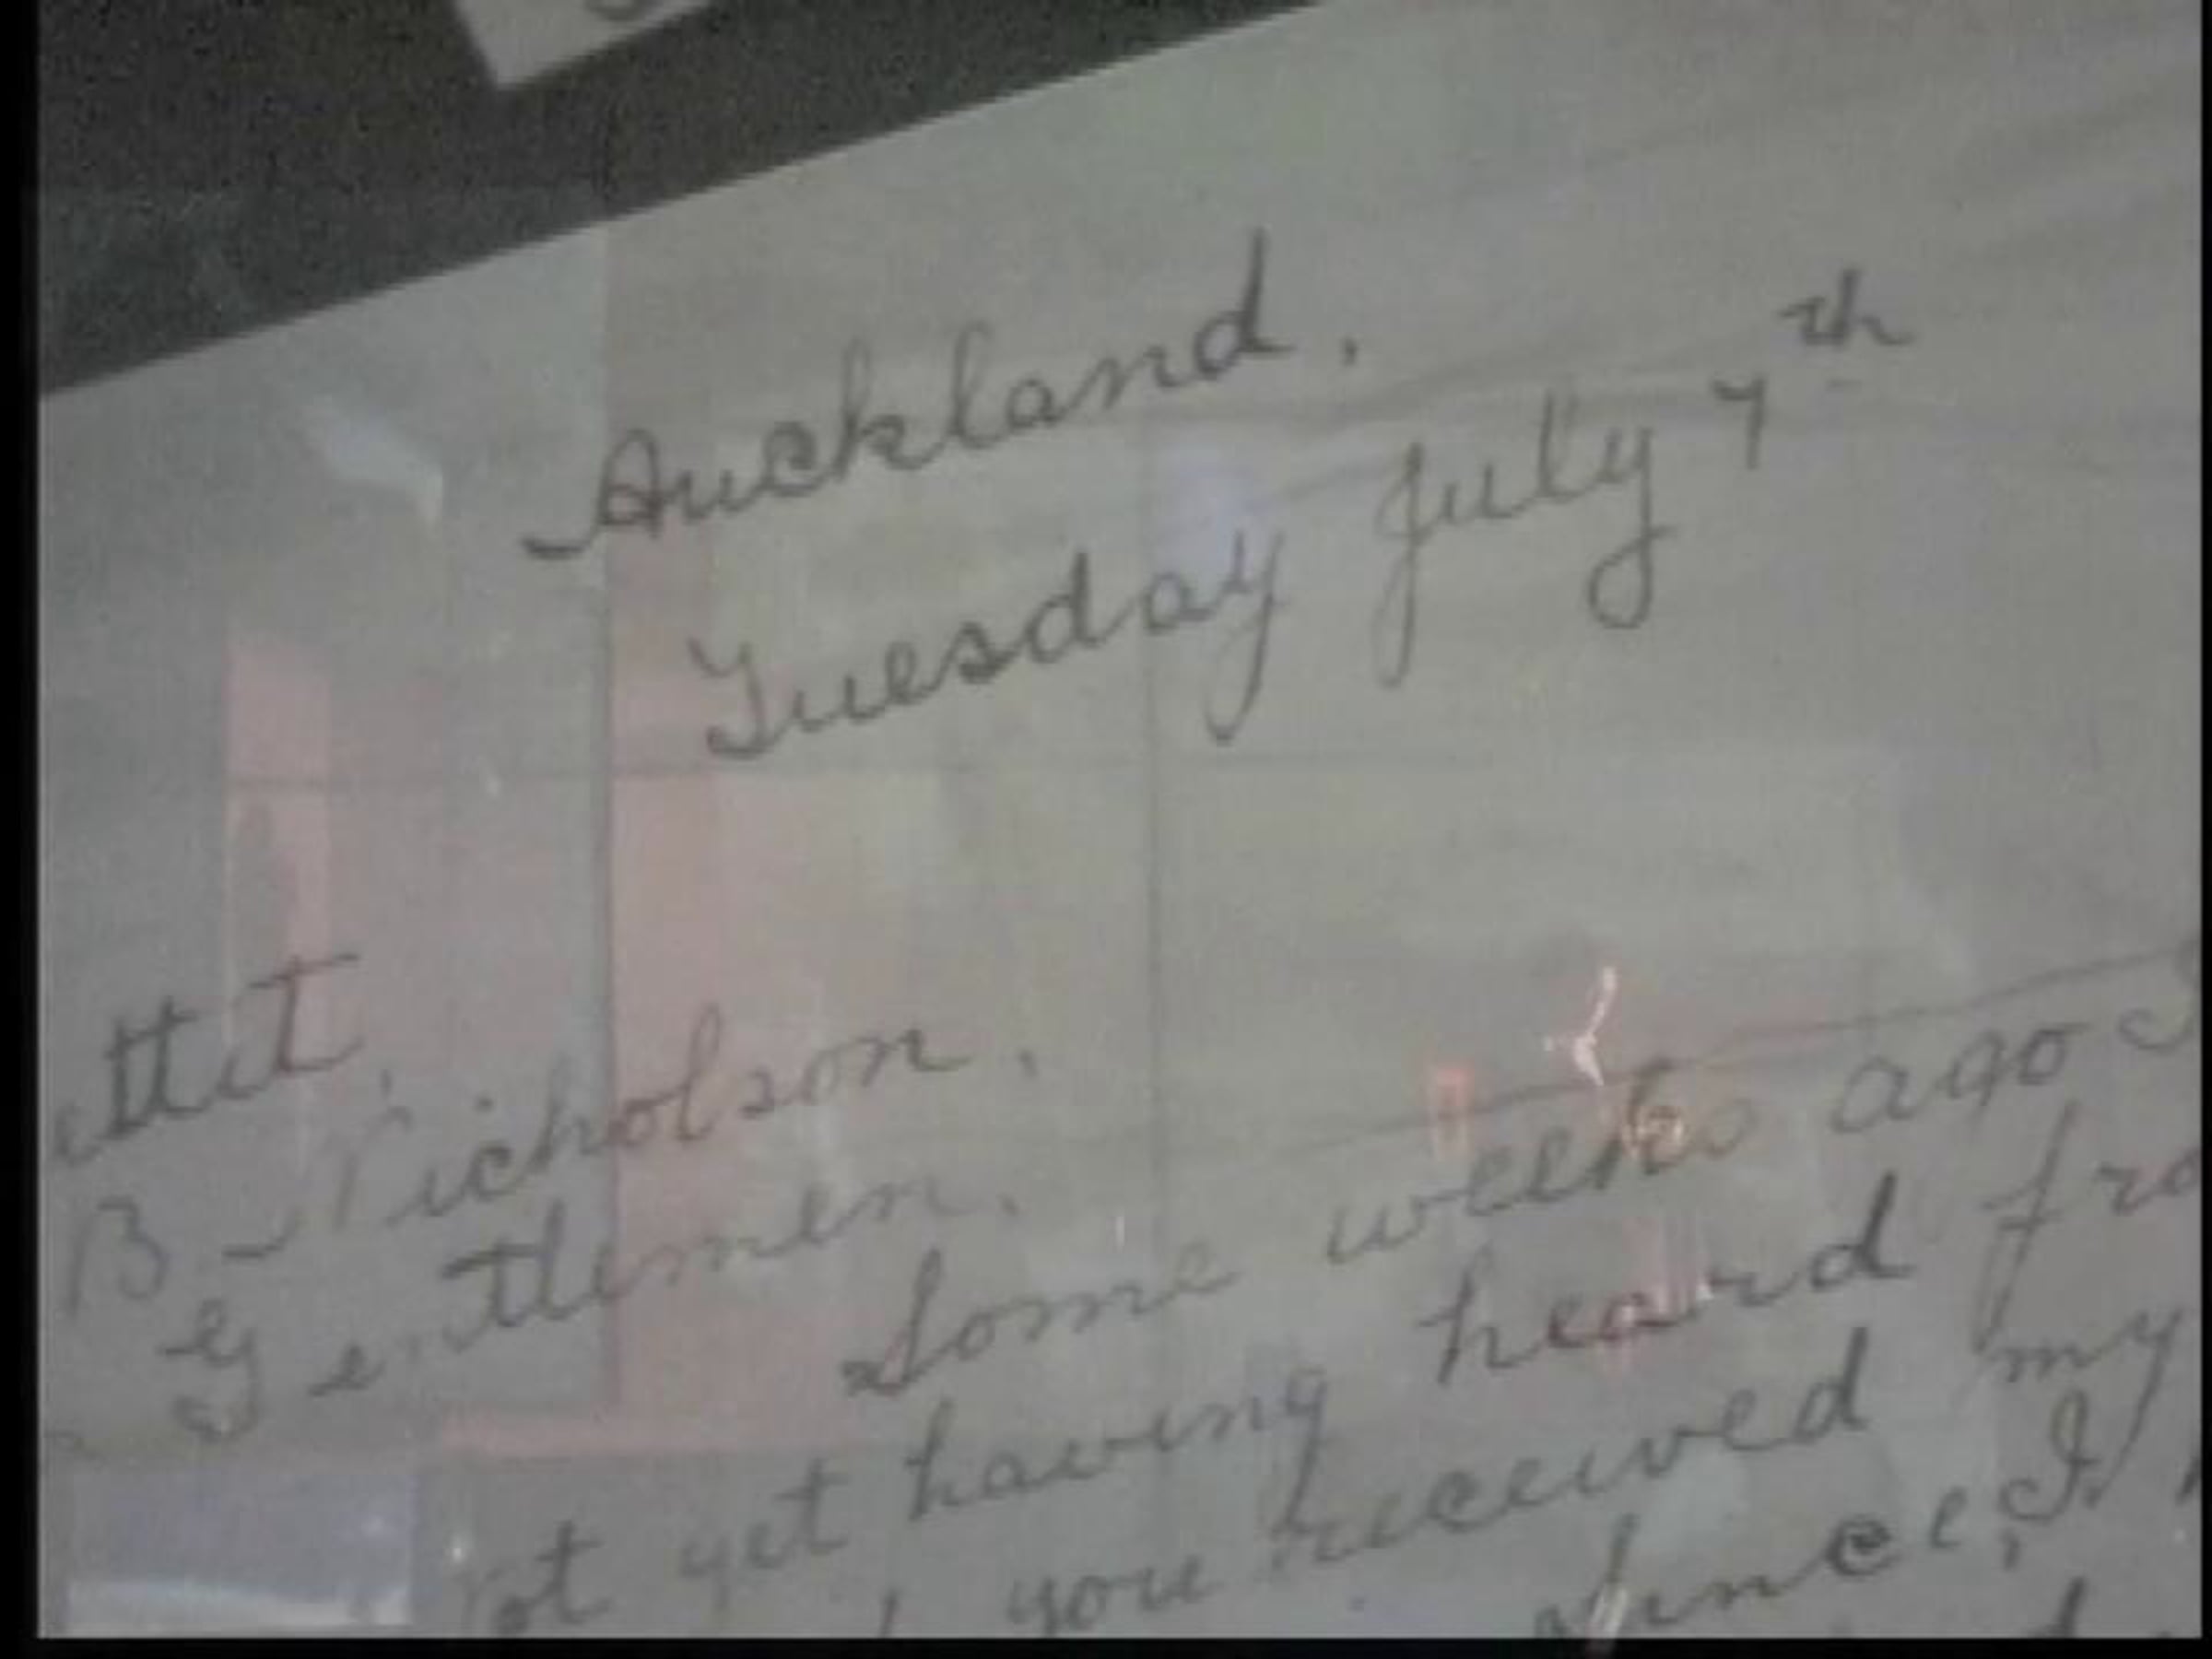 Auckland.
Tuesday July 7th
B Nicholson.
Gentlemen.
Some weeks ago
yet having heard
you received my
since, I